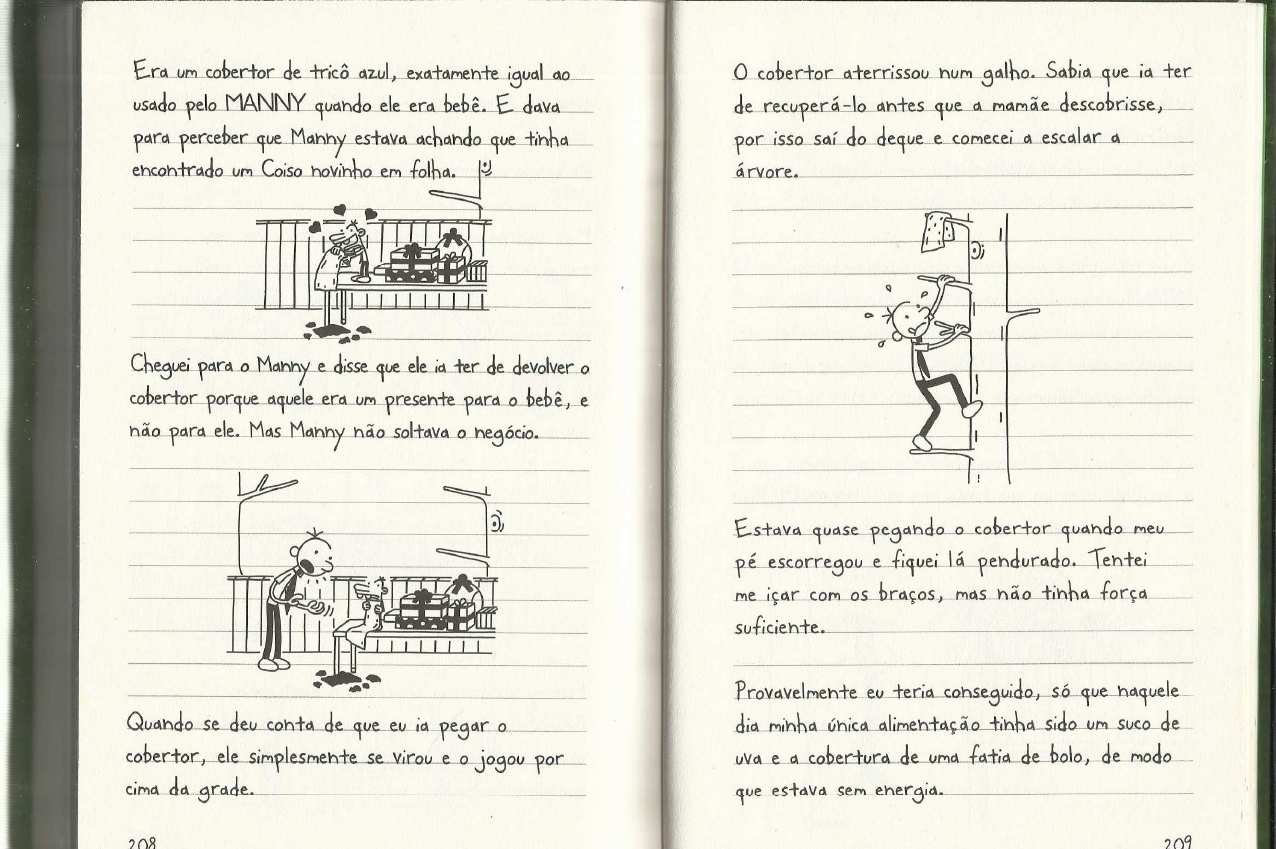 Era um cobertor de tricô azul, exatamente igual ao
usado pelo MANNY quando ele era bebê. E dava
para perceber que Manny estava achando que tinha
encontrado um Coiso novinho em folha.
Cheguei para o Manny e disse que ele ia ter de devolver o
cobertor porque aquele era um presente para o bebê, e
não para ele. Mas Manny não soltava o negócio.
Quando se deu conta de que eu ia pegar o
cobertor, ele simplesmente se virou e o jogou por
cima da grade.
208
O cobertor aterrissou num galho. Sabia que ia ter
de recuperá-lo antes que a mamãe descobrisse,
por isso saí do deque e comecei a escalar a
árvore.
Estava quase pegando o cobertor quando meu
pé escorregou e fiquei lá pendurado. Tentei
me içar com os braços, mas não tinha força
suficiente.
Provavelmente eu teria conseguido, só que naquele
dia minha única alimentação tinha sido um suco de
uva e a cobertura de uma fatia de bolo, de modo
que estava sem energia.
209